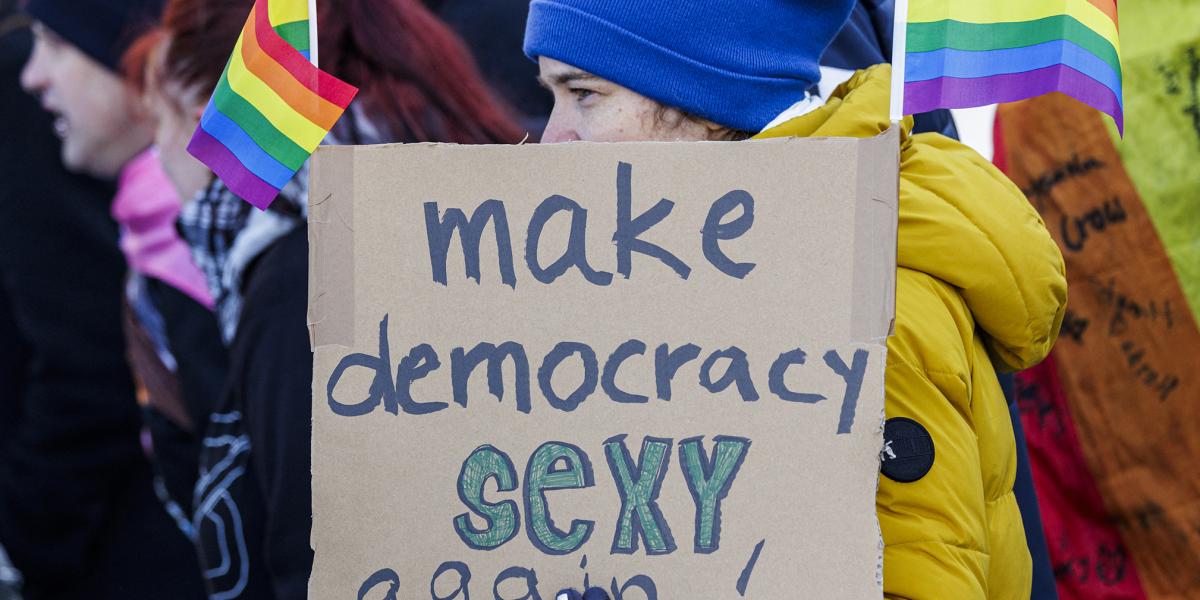 make
democracy
sexy
again!